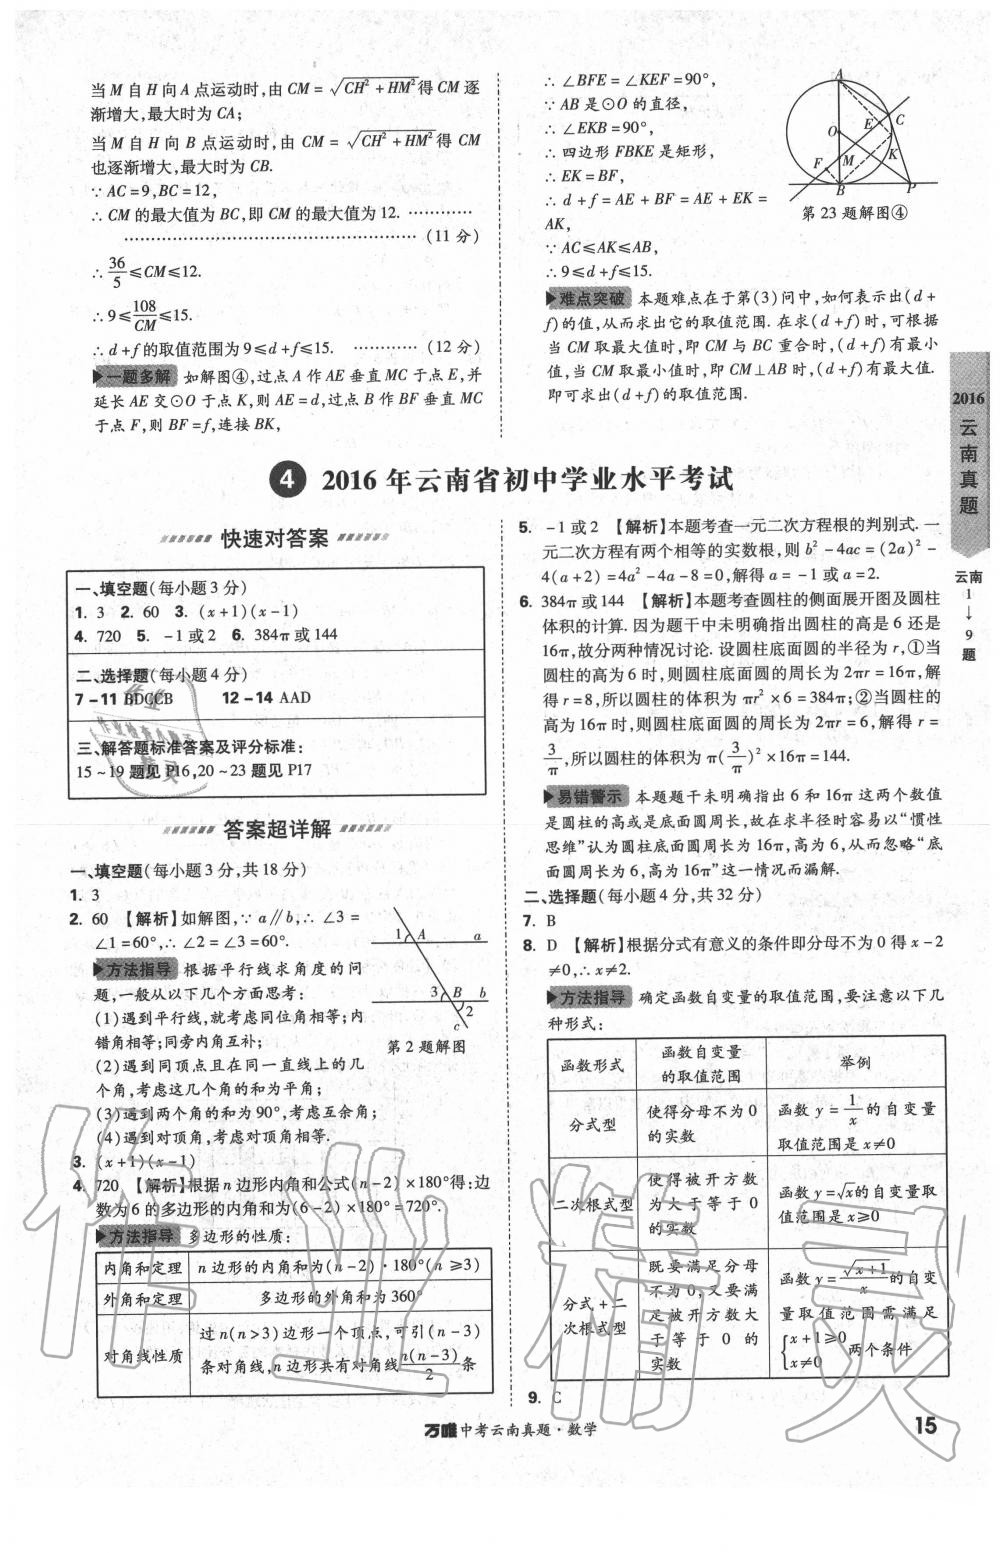 当 M 自 H 向 A 点运动时,由 CM = √(CH² + HM²) 得 CM 逐
渐增大,最大时为 CA;
当 M 自 H 向 B 点运动时,由 CM = √(CH² + HM²) 得 CM
也逐渐增大,最大时为 CB.
∵ AC = 9, BC = 12,
∴ CM 的最大值为 BC,即 CM 的最大值为 12. …………
………………………………………… (11 分)
∴ 36/5 ≤ CM ≤ 12.
∴ 9 ≤ 108/CM ≤ 15.
∴ d + f 的取值范围为 9 ≤ d + f ≤ 15. ………… (12 分)
一题多解 如解图④,过点 A 作 AE 垂直 MC 于点 E,并
延长 AE 交⊙O 于点 K,则 AE = d,过点 B 作 BF 垂直 MC
于点 F,则 BF = f,连接 BK,
∴ ∠BFE = ∠KEF = 90°,
∵ AB 是⊙O 的直径,
∴ ∠EKB = 90°,
∴ 四边形 FBKE 是矩形,
∴ EK = BF,
∴ d + f = AE + BF = AE + EK =
AK,
∵ AC ≤ AK ≤ AB,
∴ 9 ≤ d + f ≤ 15.
A
C
E
O
K
F
M
B
P
第 23 题解图④
难点突破 本题难点在于第(3)问中,如何表示出(d +
f)的值,从而求出它的取值范围. 在求(d + f)时,可根据
当 CM 取最大值时,即 CM 与 BC 重合时,(d + f)有最小
值,当 CM 取最小值时,即 CM⊥AB 时,(d + f)有最大值.
即可求出(d + f)的取值范围.
2016
云
南
真
题
云南
1
↓
9
题
4 2016 年云南省初中学业水平考试
快速对答案
一、填空题(每小题 3 分)
1. 3 2. 60 3. (x + 1)(x - 1)
4. 720 5. -1 或 2 6. 384π 或 144
二、选择题(每小题 4 分)
7 - 11 BDCCB 12 - 14 AAD
三、解答题标准答案及评分标准:
15 ~ 19 题见 P16,20 ~ 23 题见 P17
答案超详解
一、填空题(每小题 3 分,共 18 分)
1. 3
2. 60 【解析】如解图,∵ a∥b,∴ ∠3 =
∠1 = 60°,∴ ∠2 = ∠3 = 60°.
方法指导 根据平行线求角度的问
题,一般从以下几个方面思考:
(1)遇到平行线,就考虑同位角相等;内
错角相等;同旁内角互补;
(2)遇到同顶点且在同一直线上的几
个角,考虑这几个角的和为平角;
(3)遇到两个角的和为 90°,考虑互余角;
(4)遇到对顶角,考虑对顶角相等.
1 A a
3 B b
2
c
第 2 题解图
3. (x + 1)(x - 1)
4. 720 【解析】根据 n 边形内角和公式(n - 2) × 180°得:边
数为 6 的多边形的内角和为(6 - 2) × 180° = 720°.
方法指导 多边形的性质:
内角和定理 n 边形的内角和为(n - 2)·180°(n ≥ 3)
外角和定理 多边形的外角和为 360°
对角线性质 过 n(n > 3)边形一个顶点,可引(n - 3)
条对角线,n 边形共有对角线 n(n - 3)/2 条
5. -1 或 2 【解析】本题考查一元二次方程根的判别式. 一
元二次方程有两个相等的实数根,则 b² - 4ac = (2a)² -
4(a + 2) = 4a² - 4a - 8 = 0,解得 a = -1 或 a = 2.
6. 384π 或 144 【解析】本题考查圆柱的侧面展开图及圆柱
体积的计算. 因为题干中未明确指出圆柱的高是 6 还是
16π,故分两种情况讨论. 设圆柱底面圆的半径为 r,①当
圆柱的高为 6 时,则圆柱底面圆的周长为 2πr = 16π,解
得 r = 8,所以圆柱的体积为 πr² × 6 = 384π;②当圆柱的
高为 16π 时,则圆柱底面圆的周长为 2πr = 6,解得 r =
3/π,所以圆柱的体积为 π(3/π)² × 16π = 144.
易错警示 本题题干未明确指出 6 和 16π 这两个数值
是圆柱的高或是底面圆周长,故在求半径时容易以“惯性
思维”认为圆柱底面圆周长为 16π,高为 6,从而忽略“底
面圆周长为 6,高为 16π”这一情况而漏解.
二、选择题(每小题 4 分,共 32 分)
7. B
8. D 【解析】根据分式有意义的条件即分母不为 0 得 x - 2
≠ 0,∴ x ≠ 2.
方法指导 确定函数自变量的取值范围,要注意以下几
种形式:
函数形式 函数自变量的取值范围 举例
分式型 使得分母不为 0 的实数 函数 y = 1/x 的自变量取值范围是 x ≠ 0
二次根式型 使得被开方数为大于等于 0 的实数 函数 y = √x 的自变量取值范围是 x ≥ 0
分式 + 二次根式型 既要满足分母不为 0,又要满足被开方数大于等于 0 的实数 函数 y = √(x + 1)/x 的自变量取值范围需满足 {x + 1 ≥ 0 x ≠ 0 两个条件
9. C
万唯中考云南真题·数学
15
作业精灵